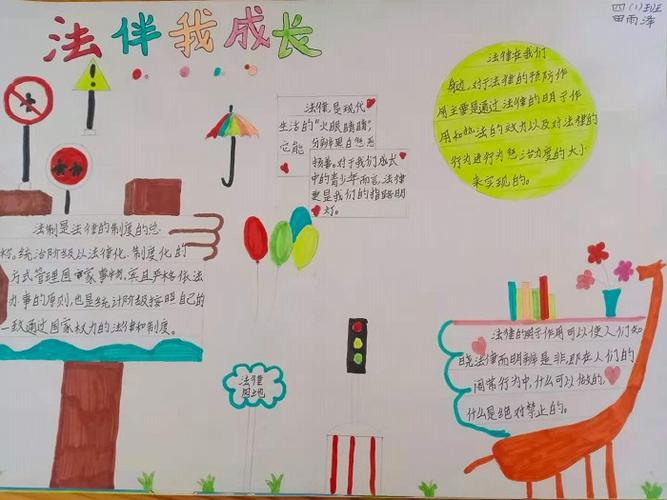 四(1)班
田雨泽
法伴我成长
法律是现代
生活的“火眼睛睛”,
它能分辨黑白惩恶
扬善。对于我们成长
中的青少年而言,法律
更是我们的指路明
灯。
法律在我们
身边,对于法律的预防作
用主要是通过法律的明示作
用和执法的效力以及对法律的
行为进行为惩治力度的大小
来实现的。
法制是法律的制度的总
称。统治阶级以法律化、制度化的
方式管理国家事务,实且严格依法
办事的原则,也是统计阶级按照自己的
一致通过国家权力的法律和制度。
法律
园地
法律的明示作用可以使人们知
晓法律而明辨是非,即在人们的
闹常行为中,什么可以做的,
什么是绝对禁止的。